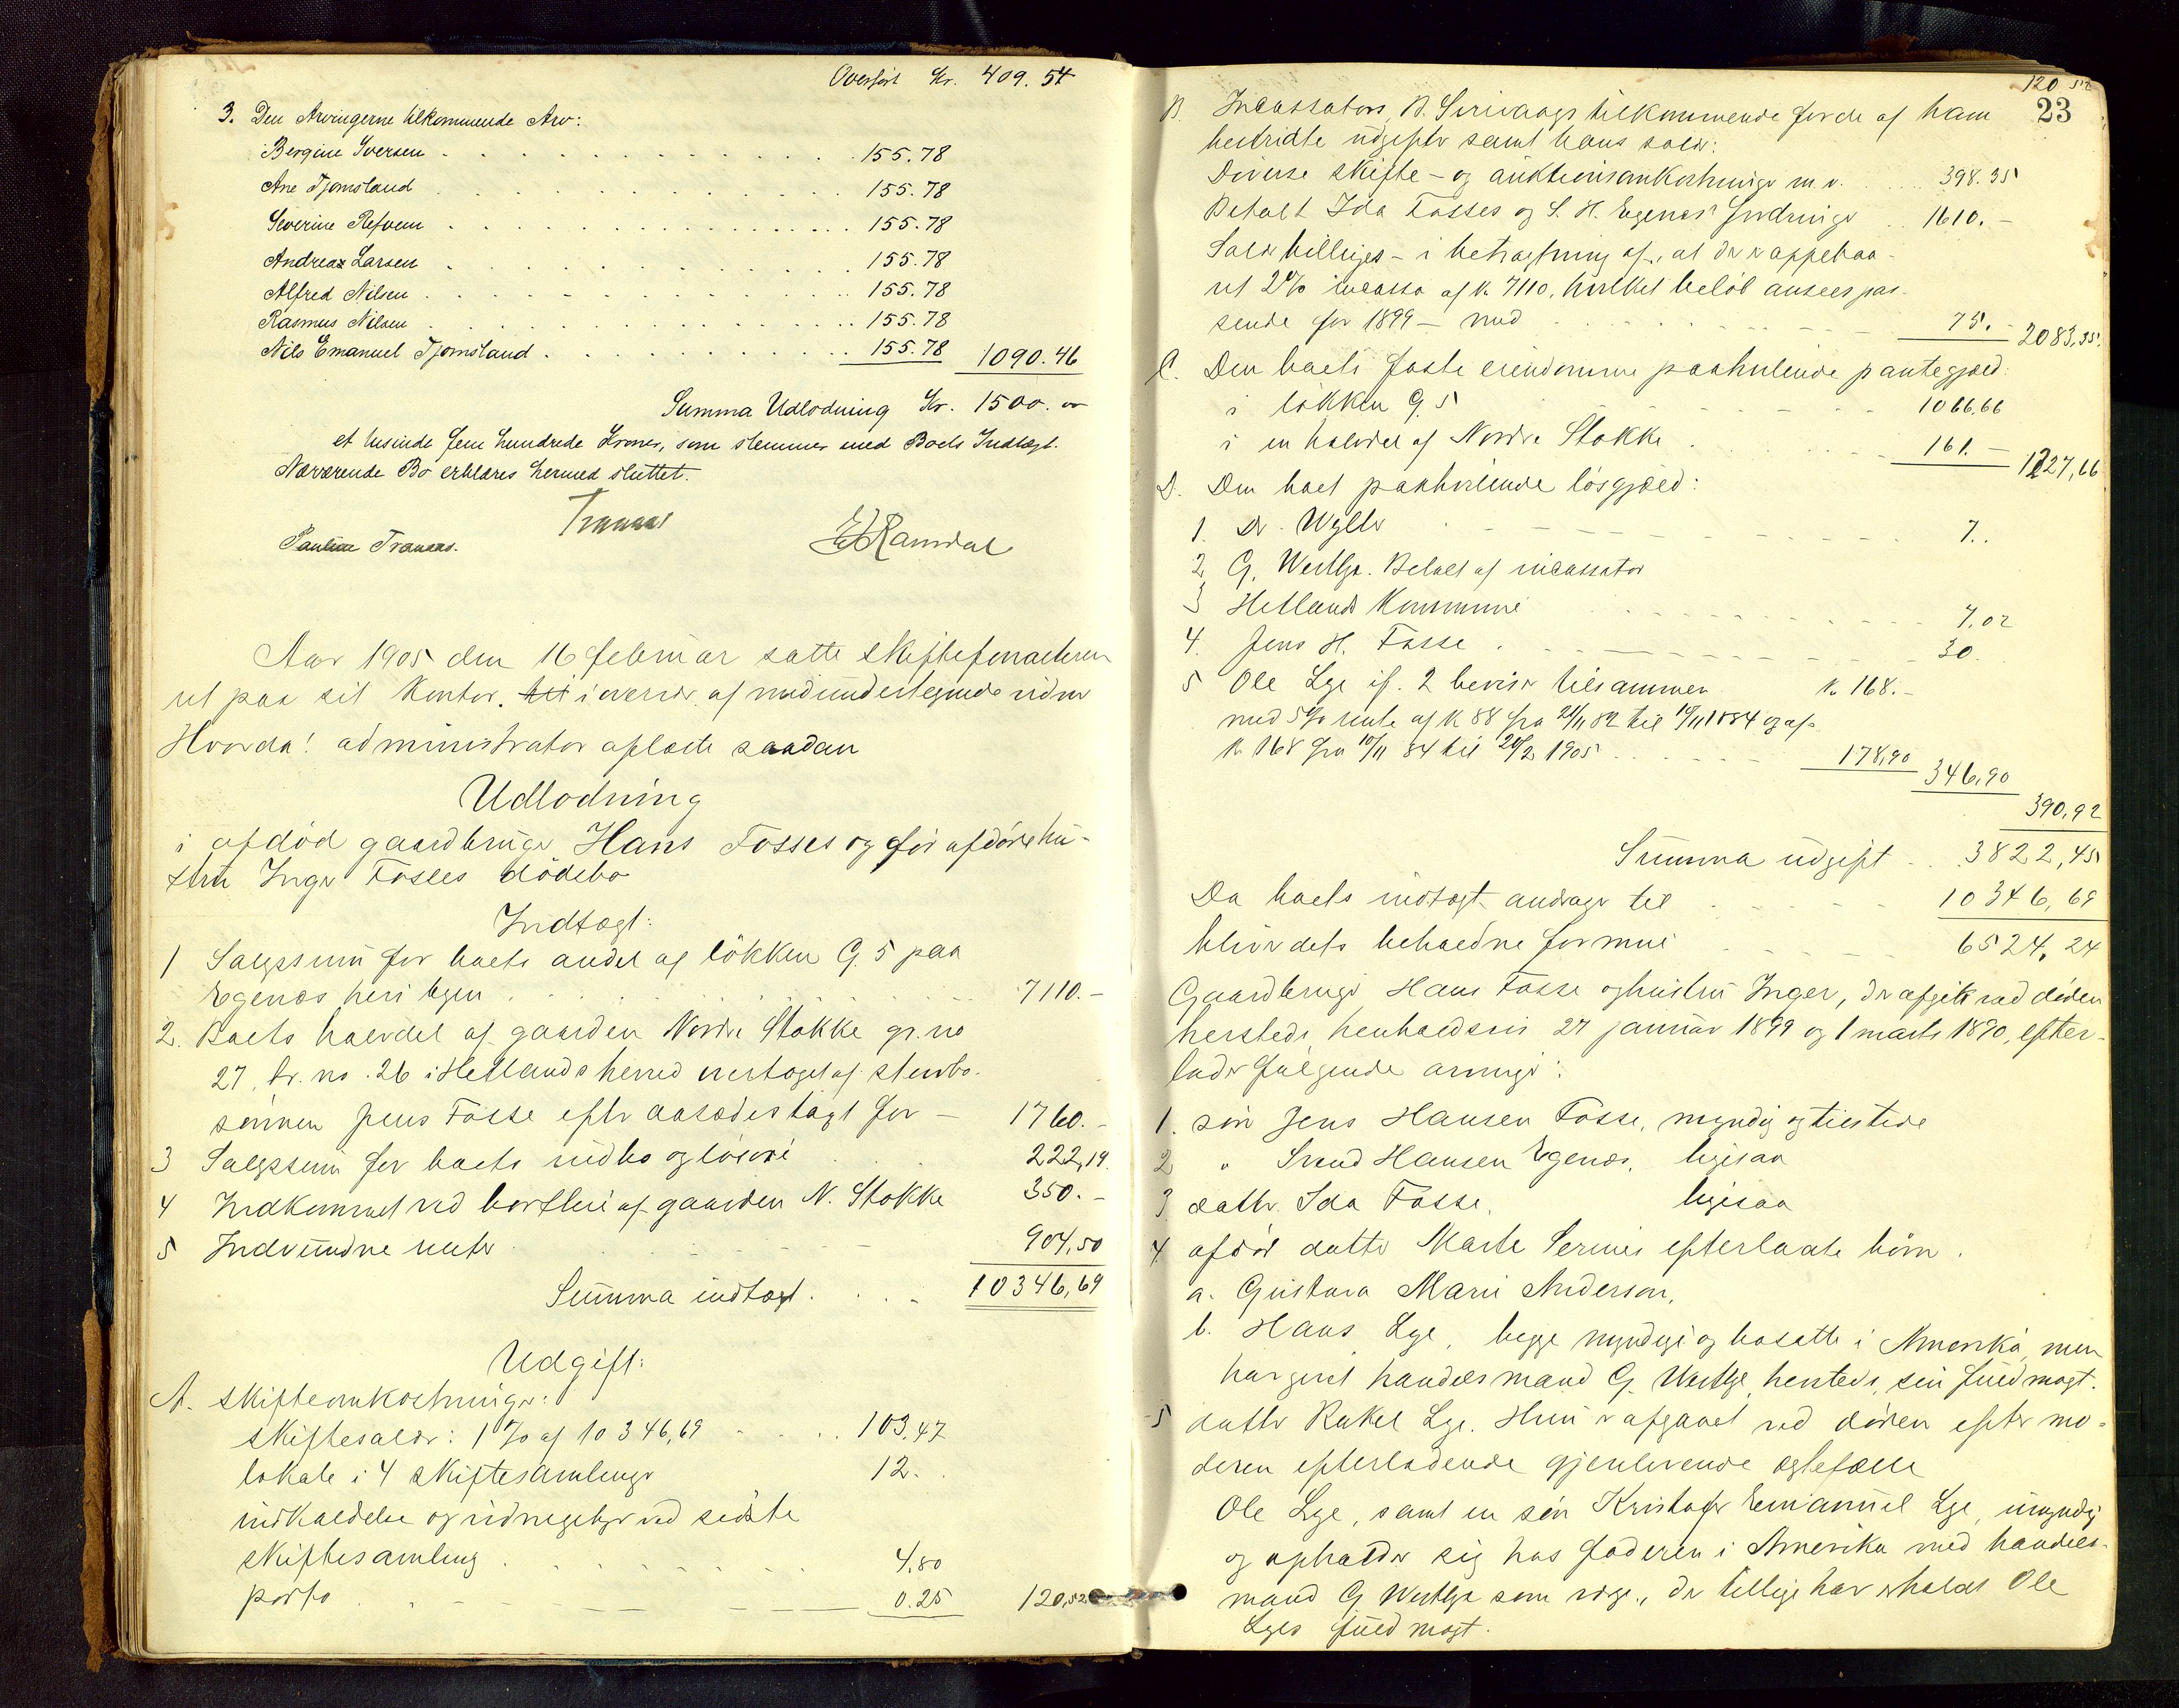 Overført Kr. 409.54
3. Den Arvingerne tilkommende Arv:
Bergine Iversen 155.78
Ane Tjomsland 155.78
Severine Refvem 155.78
Andreas Larsen 155.78
Alfred Nilsen 155.78
Rasmus Nilsen 155.78
Nils Emanuel Tjomsland 155.78 1090.46
Summa Udlodning Kr. 1500.
et tusinde fem hundrede Kroner, som stemmer med Boets Indtægt.
Nærværende Bo erklæres hermed sluttet.
Tranaas
Pauline Tranaas. Ramdal
Aar 1905 den 16 februar satte skifteforvalteren
ret paa sit Kontor. til i overvær af medundertegnede vidner
Hvorda: administrator oplæste saadan
Udlodning
i afdød gaardbruger Hans Fosses og før afdøde hu-
stru Inger Fosses dødsbo
Indtægt:
1 Salgssum for boets andel af løkken G. 5 paa
Egenæs heri byen 7110.-
2. Boets halvdel af gaarden Nordre Stokke gr. no
27, br. no. 26 i Hetlands herred overtaget af stervbo-
sønnen Jens Fosse efter aasædestagt for - 1760.-
3 Salgssum for boets indbo og løsøre 222,19.
4 Indkommet ved bortleie af gaarden N. Stokke 350.-
5 Indvundne renter 904,50
Summa indtægt 10346,69
Udgift:
A. skifteomkostninger:
skiftesalær: 1 % af 10346,69 103,47
lokale i 4 skiftesamlinger 12.
indkaldelse og vidnegebyr ved sidste
skiftesamling 4,80
porto 0.25 120,52
120,52
23
B. Incassator B. Serivaags tilkommende for de af ham
bestridte udgifter samt hans salær:
Diverse skifte- og auktionsomkostninger m.v. 398.35
Betalt Ida Fosses og S. H. Egenæs' fordringer 1610.-
Salær billiges - i betragtning af, at der er oppebaa-
ret 2 % incasso af k. 7110, hvilket beløb ansees pas-
sende for 1899 - med 75.- 2083,35.
C. Den boets faste eiendomme paahvilende pantegjæld:
i løkken G. 5 1066.66
i en halvdel af Nordre Stokke 161.- 1227,66
D. Den boet paahvilende løsgjæld:
1. Dr. Wyller 7..
2 G. Westlye. Betalt af incassator
3 Hetlands Kommune 7.02
4. Jens H. Fosse 30.
5 Ole Lye if. 2 beviser tilsammen K. 168.-
med 5% rente af K 88 fra 21/11 82 til 10/11 1884 og af
k. 168 fra 10/11 84 til 20/2 1905 178,90
346,90
390,92
Summa udgift 3822,45
Da boets indtægt andrager til 10346,69
bliver dets beholdne formue 6524,24
Gaardbruger Hans Fosse og hustru Inger, der afgik ved døden
hersteds, henholdsvis 27 januar 1899 og 1 marts 1890, efter-
lader følgende arvinger:
1. søn Jens Hansen Fosse, myndig og tilstede
2 " Svend Hansen Egenæs, ligesaa
3. datter Ida Fosse, ligesaa
4. afdød datter Marte Serines efterladte børn.
a. Gustava Marie Anderson,
b. Hans Lye, begge myndige og bosatte i Amerika, men
har givet handelsmand G. Westlye hersteds, sin fuldmagt.
5 datter Rakel Lye. Hun er afgaaet ved døden efter mo-
deren efterladende gjenlevende ægtefælle
Ole Lye, samt en søn Kristofer Emanuel Lye, umyndig
og opholder sig hos faderen i Amerika med handels-
mand G Westlye som værge, der tillige har erholdt Ole
Lyes fuldmagt.